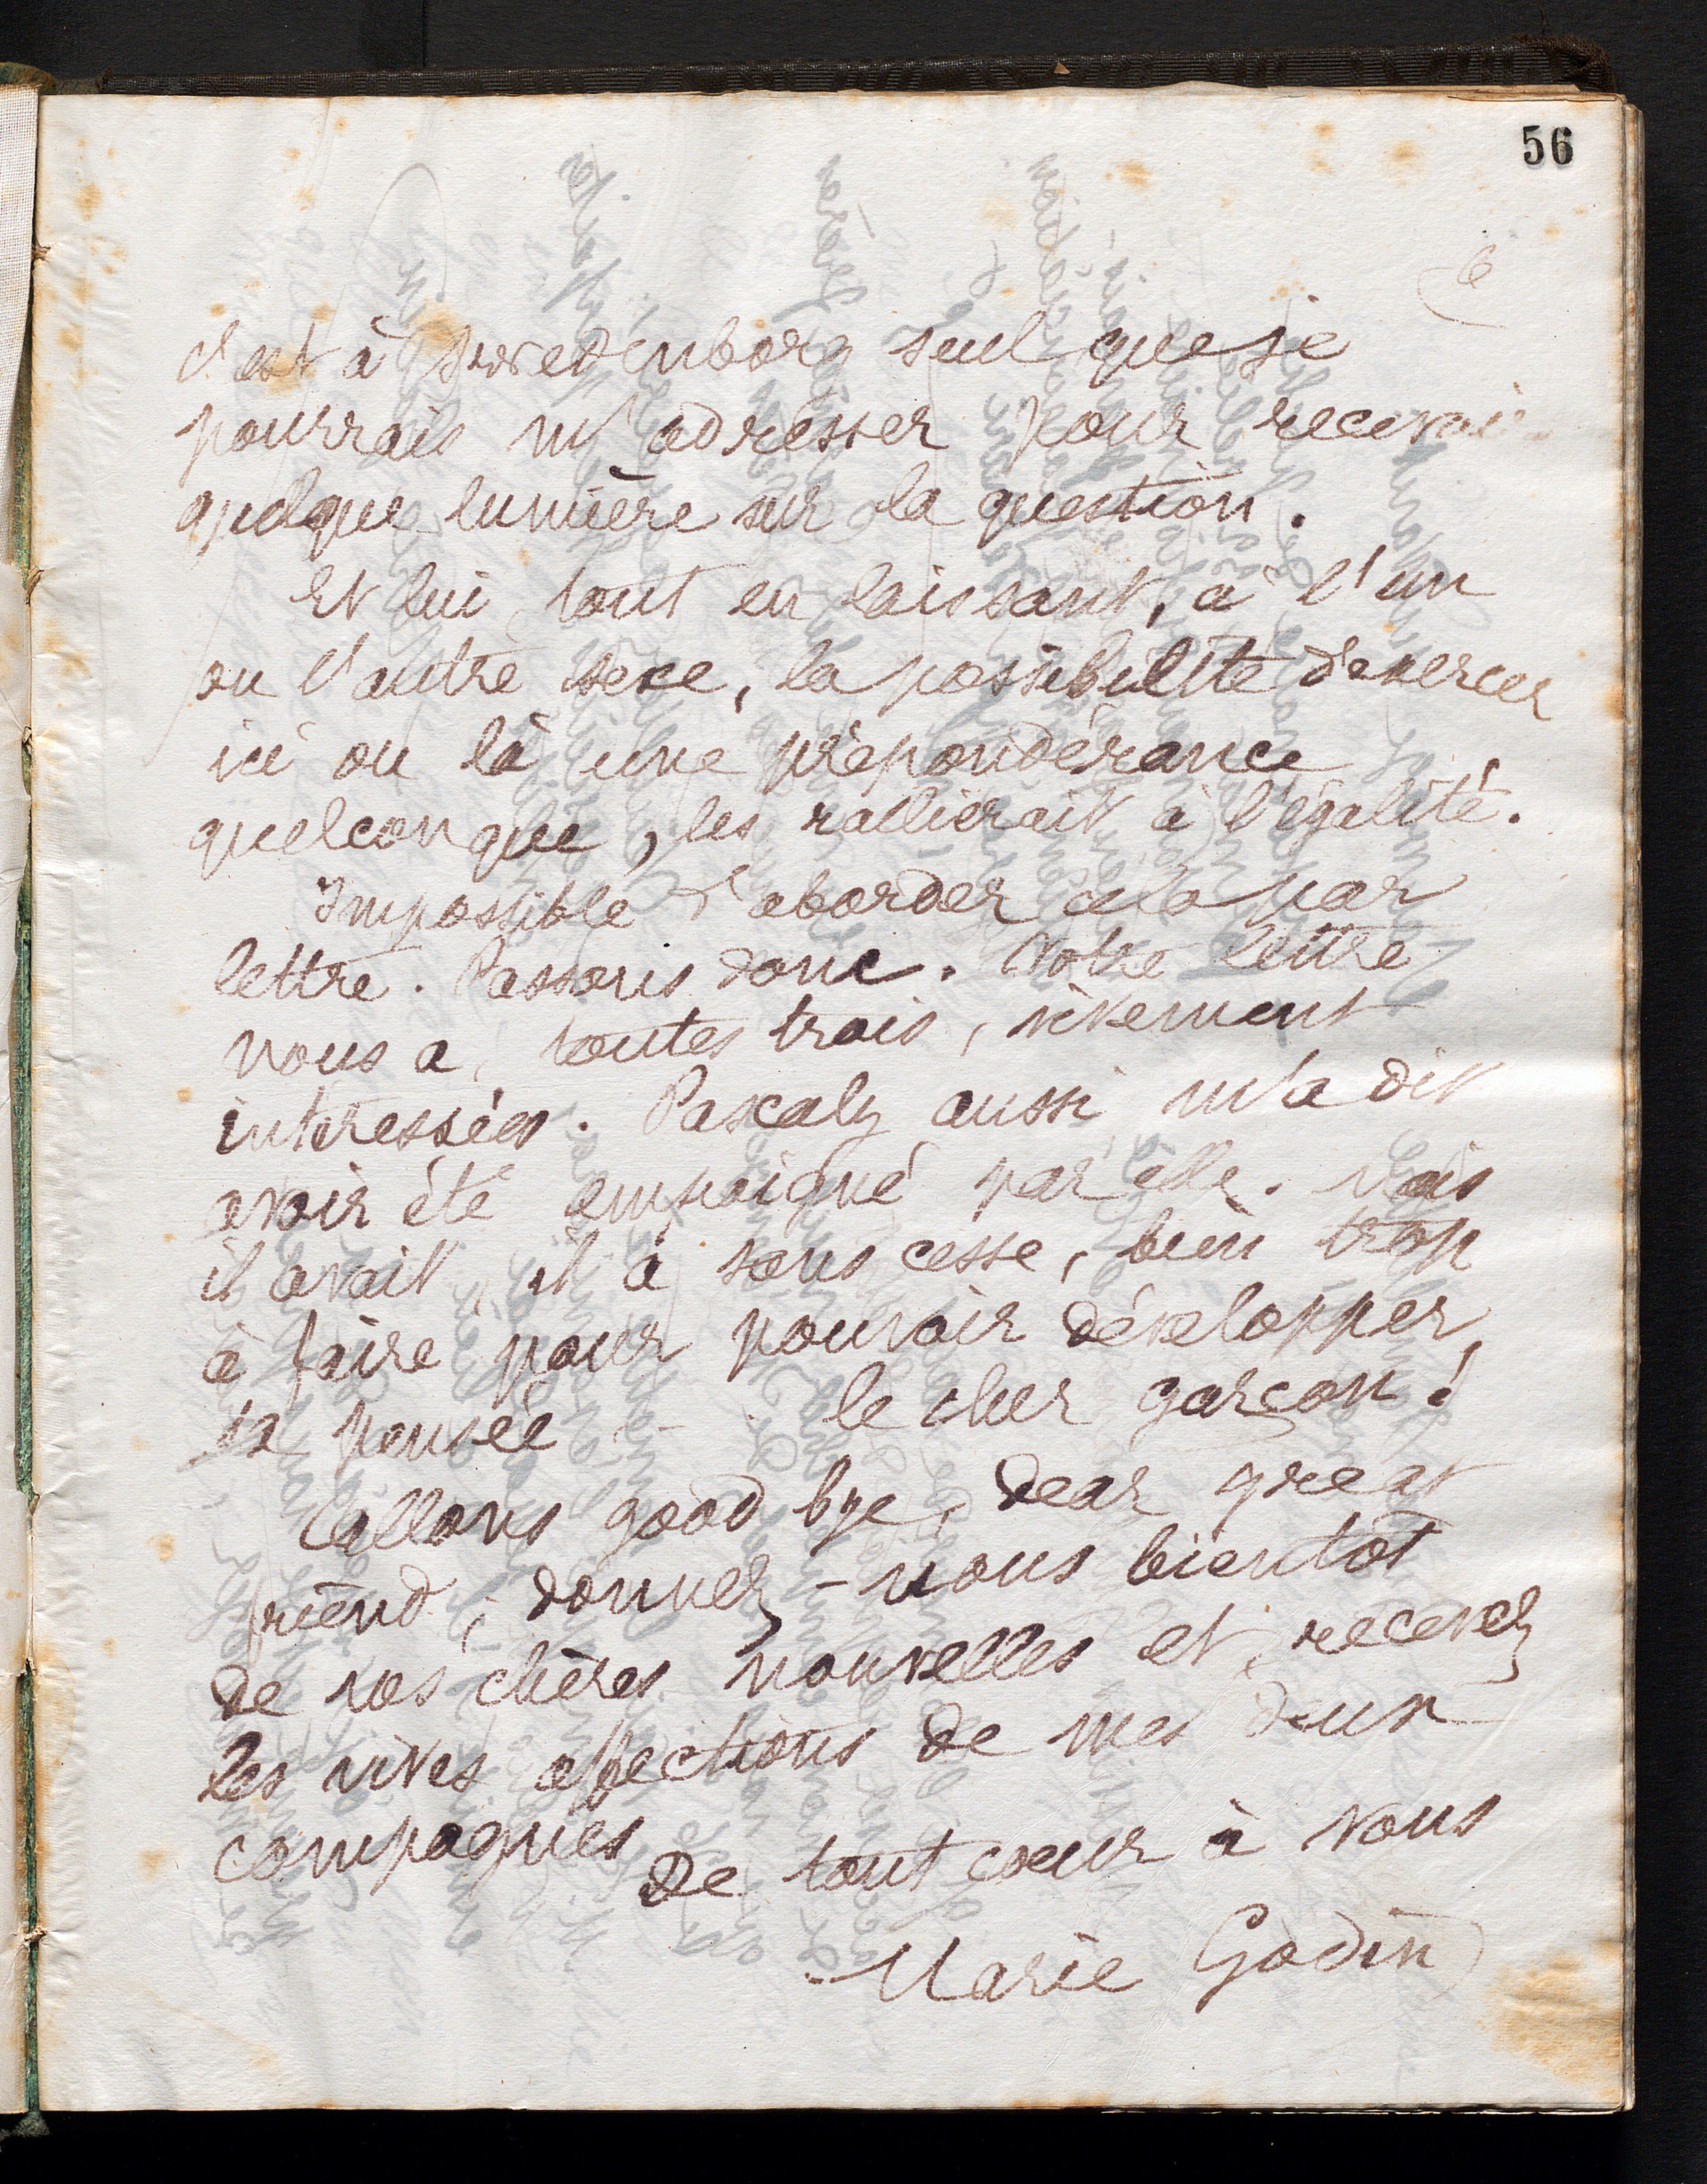 56
6
c'est à Swedenborg seul que je
pourrais m'adresser pour recevoir
quelque lumière sur la question.
Et lui, tout en laissant, à l'un
ou l'autre sexe, la possibilité d'exercer
ici ou là une prépondérance
quelconque, les rallierait à l'égalité.
Impossible d'aborder cela par
lettre. Passons donc. Votre lettre
nous a, toutes trois, vivement
intéressées. Pascaly aussi m'a dit
avoir été empoigné par elle. Mais
il avait, il a sans cesse, bien trop
à faire pour pouvoir développer
sa pensée - le cher garçon!
Allons good bye, dear great
friend, donnez-nous bientôt
de vos chères nouvelles et recevez
les vives affections de mes deux
compagnes
De tout cœur à vous
Marie Godin